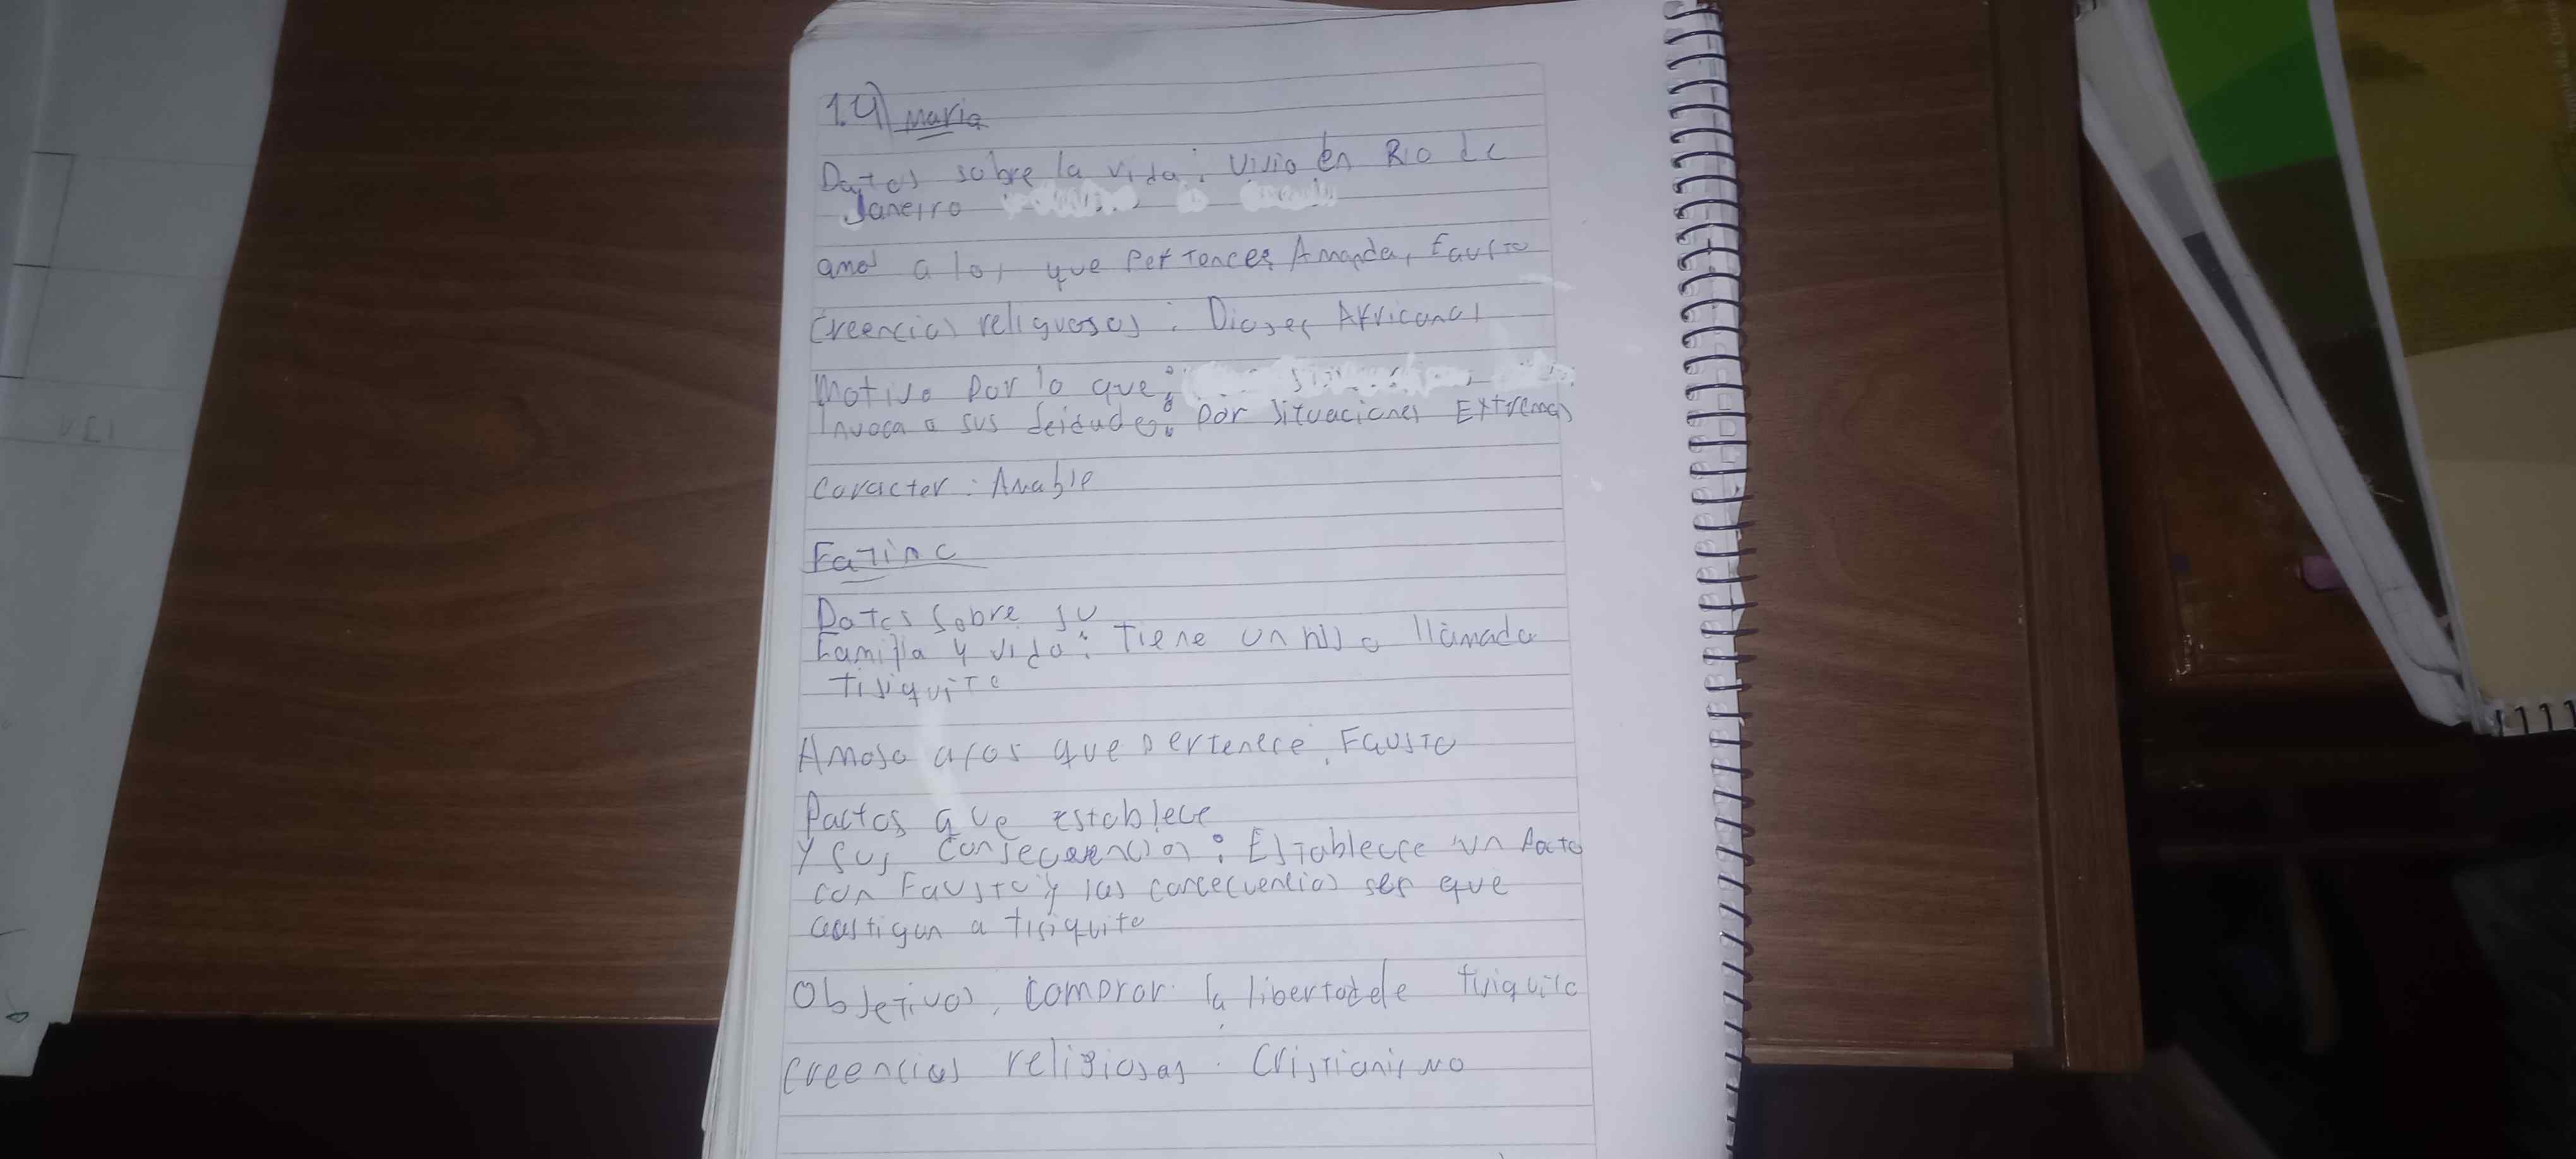 1.4) Maria
Datos sobre la vida: Vivio en Rio de
Janeiro
amos a los que pertences Amanda, Fausto
Creencias religuosas: Dioses Africanos
Motivo por lo que:
Invoca a sus deidades: por situaciones Extremas
Caracter: Amable
Fatima
Datos sobre su
Familia y vida: Tiene un hijo llamado
tisiquito
Amoso a los que pertenece. Fausto
Pactos que establece
y sus consecuencias: Establecce un Pacto
con Fausto y las concecuencias ser que
castigan a tisiquito
Objetivos, comprar la libertad de tisiquito
Creencias religiosas. Cristianismo